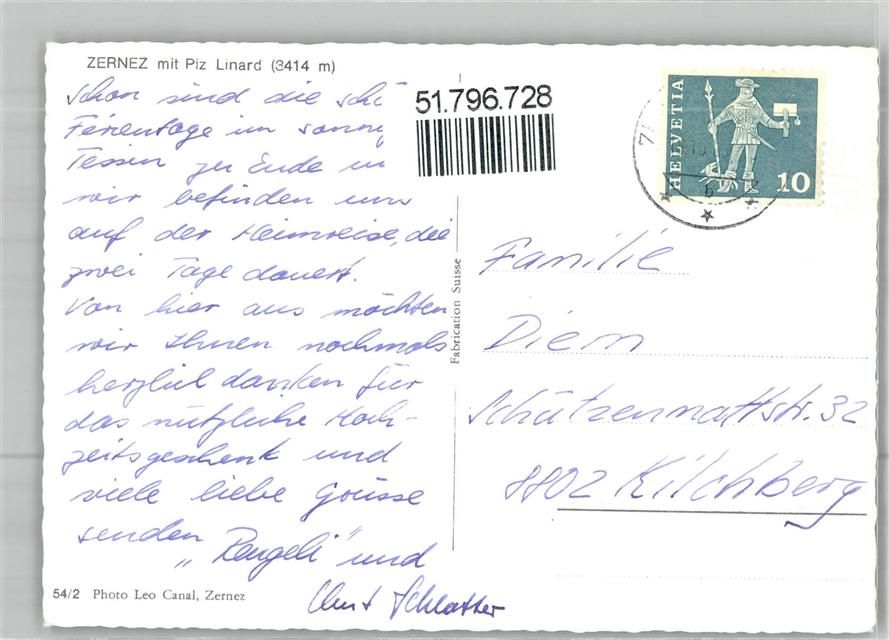 ZERNEZ mit Piz Linard (3414 m)
Schon sind die schö
Ferientage im sonni
Tessin zu Ende un
wir befinden uns
auf der Heimreise, die
zwei Tage dauert.
Von hier aus möchten
wir Ihnen nochmals
herzlich danken für
das nützliche Hoch-
zeitsgeschenk und
viele liebe Grüsse
senden
und
Schlatter
54/2 Photo Leo Canal, Zernez
Fabrication Suisse
51.796.728
HELVETIA
10
Familie
Diem
Schützenmattstr. 32
8802 Kilchberg